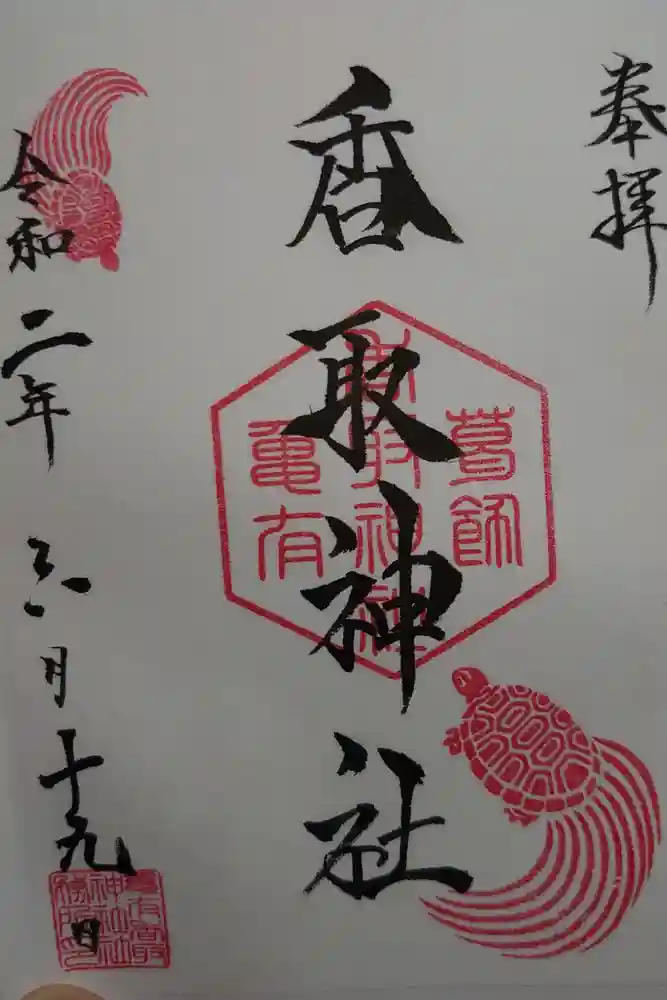 奉拝
葛飾
香取神社
香取神社
亀有
令和二年六月十九日